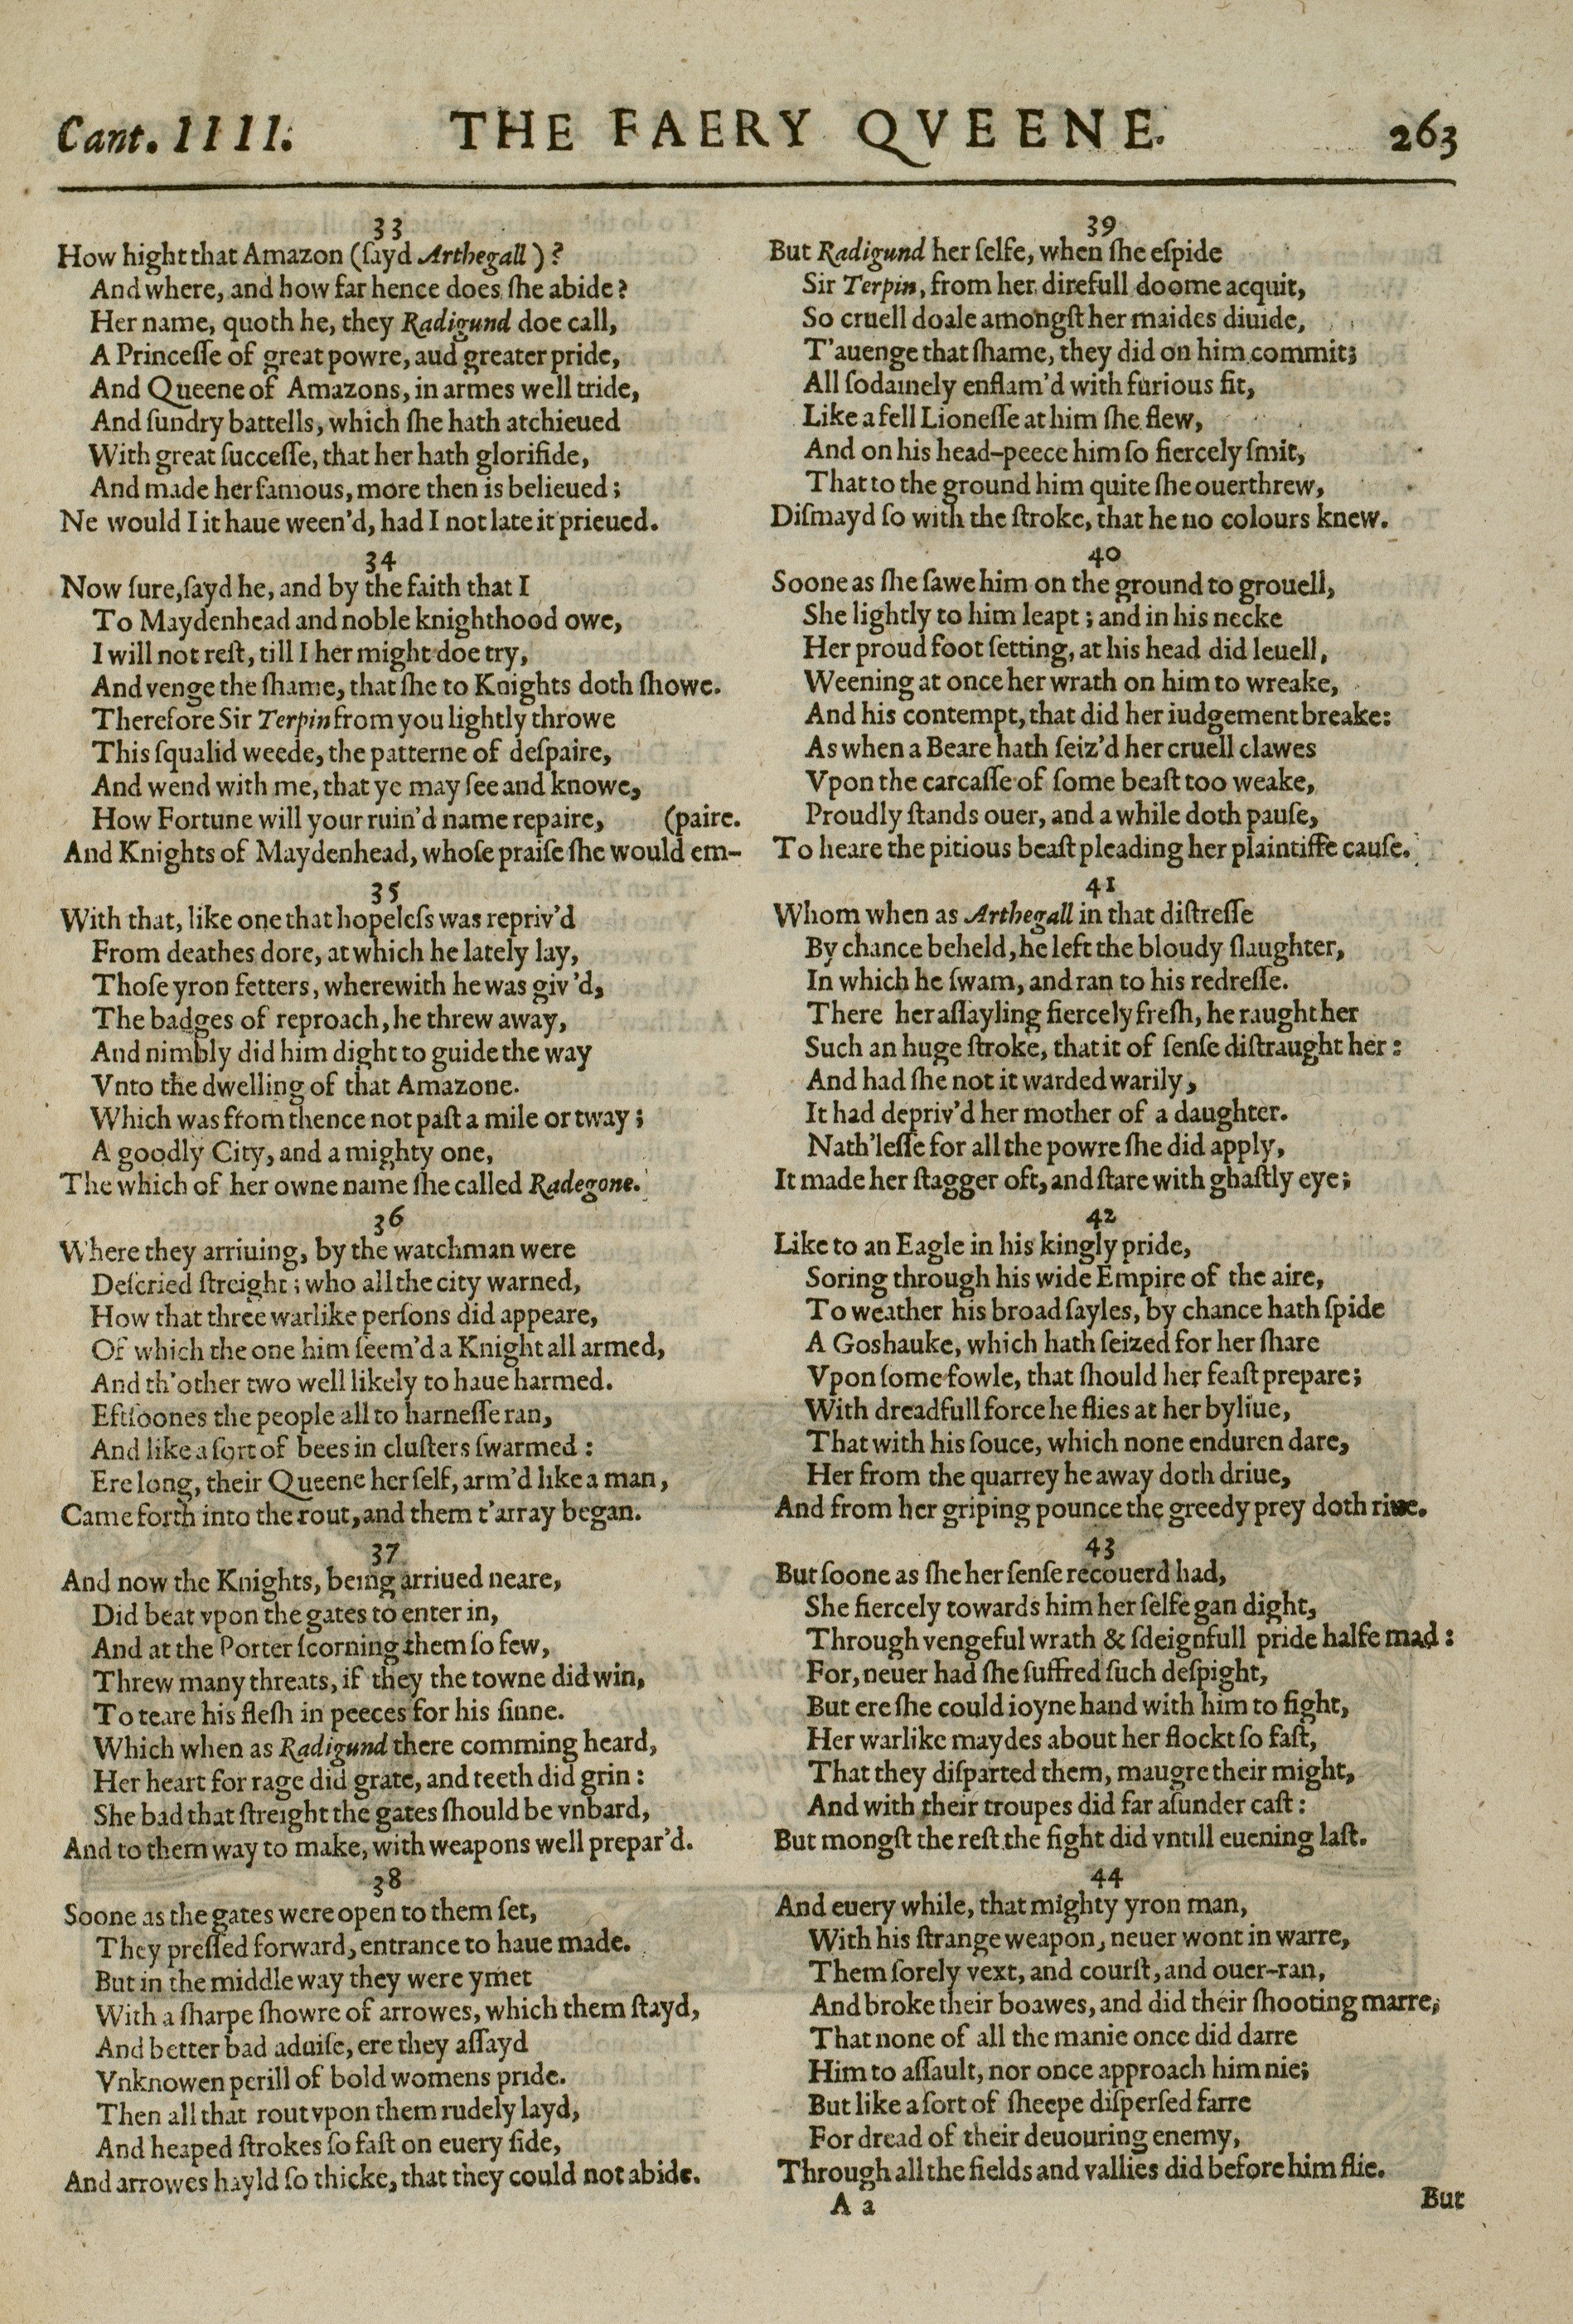 Cant. IIII. THE FAERY QVEENE. 263
33
How hight that Amazon (ſayd Arthegall)?
And where, and how far hence does ſhe abide?
Her name, quoth he, they Radigund doe call,
A Princeſſe of great powre, aud greater pride,
And Queene of Amazons, in armes well tride,
And ſundry battells, which ſhe hath atchieued
With great ſucceſſe, that her hath glorifide,
And made her famous, more then is belieued;
Ne would I it haue ween'd, had I not late it prieued.
34
Now ſure, ſayd he, and by the faith that I
To Maydenhead and noble knighthood owe,
I will not reſt, till I her might doe try,
And venge the ſhame, that ſhe to Knights doth ſhowe.
Therefore Sir Terpin from you lightly throwe
This ſqualid weede, the patterne of deſpaire,
And wend with me, that ye may ſee and knowe,
How Fortune will your ruin'd name repaire, (paire.
And Knights of Maydenhead, whoſe praiſe ſhe would em-
35
With that, like one that hopeleſs was repriv'd
From deathes dore, at which he lately lay,
Thoſe yron fetters, wherewith he was giv'd,
The badges of reproach, he threw away,
And nimbly did him dight to guide the way
Vnto the dwelling of that Amazone.
Which was from thence not paſt a mile or tway;
A goodly City, and a mighty one,
The which of her owne name ſhe called Radegone.
36
Where they arriuing, by the watchman were
Deſcried ſtreight; who all the city warned,
How that three warlike perſons did appeare,
Of which the one him ſeem'd a Knight all armed,
And th'other two well likely to haue harmed.
Eftſoones the people all to harneſſe ran,
And like a ſort of bees in cluſters ſwarmed:
Ere long, their Queene her ſelf, arm'd like a man,
Came forth into the rout, and them t'array began.
37
And now the Knights, being arriued neare,
Did beat vpon the gates to enter in,
And at the Porter ſcorning them ſo few,
Threw many threats, if they the towne did win,
To teare his fleſh in peeces for his ſinne.
Which when as Radigund there comming heard,
Her heart for rage did grate, and teeth did grin:
She bad that ſtreight the gates ſhould be vnbard,
And to them way to make, with weapons well prepar'd.
38
Soone as the gates were open to them ſet,
They preſſed forward, entrance to haue made.
But in the middle way they were ymet
With a ſharpe ſhowre of arrowes, which them ſtayd,
And better bad aduiſe, ere they aſſayd
Vnknowen perill of bold womens pride.
Then all that rout vpon them rudely layd,
And heaped ſtrokes ſo faſt on euery ſide,
And arrowes hayld ſo thicke, that they could not abide.
39
But Radigund her ſelfe, when ſhe eſpide
Sir Terpin, from her direfull doome acquit,
So cruell doale amongſt her maides diuide,
T'auenge that ſhame, they did on him commit;
All ſodainely enflam'd with furious fit,
Like a fell Lioneſſe at him ſhe flew,
And on his head-peece him ſo fiercely ſmit,
That to the ground him quite ſhe ouerthrew,
Diſmayd ſo with the ſtroke, that he no colours knew.
40
Soone as ſhe ſawe him on the ground to grouell,
She lightly to him leapt; and in his necke
Her proud foot ſetting, at his head did leuell,
Weening at once her wrath on him to wreake,
And his contempt, that did her iudgement breake:
As when a Beare hath ſeiz'd her cruell clawes
Vpon the carcaſſe of ſome beaſt too weake,
Proudly ſtands ouer, and a while doth pauſe,
To heare the pitious beaſt pleading her plaintiffe cauſe.
41
Whom when as Arthegall in that diſtreſſe
By chance beheld, he left the bloudy ſlaughter,
In which he ſwam, and ran to his redreſſe.
There her aſſayling fiercely freſh, he raught her
Such an huge ſtroke, that it of ſenſe diſtraught her:
And had ſhe not it warded warily,
It had depriv'd her mother of a daughter.
Nath'leſſe for all the powre ſhe did apply,
It made her ſtagger oft, and ſtare with ghaſtly eye;
42
Like to an Eagle in his kingly pride,
Soring through his wide Empire of the aire,
To weather his broad ſayles, by chance hath ſpide
A Goshauke, which hath ſeized for her ſhare
Vpon ſome fowle, that ſhould her feaſt prepare;
With dreadfull force he flies at her byliue,
That with his ſouce, which none enduren dare,
Her from the quarrey he away doth driue,
And from her griping pounce the greedy prey doth riue.
43
But ſoone as ſhe her ſenſe recouerd had,
She fiercely towards him her ſelfe gan dight,
Through vengeful wrath & ſdeignfull pride halfe mad:
For, neuer had ſhe ſuffred ſuch deſpight,
But ere ſhe could ioyne hand with him to fight,
Her warlike maydes about her flockt ſo faſt,
That they diſparted them, maugre their might,
And with their troupes did far aſunder caſt:
But mongſt the reſt the fight did vntill euening laſt.
44
And euery while, that mighty yron man,
With his ſtrange weapon, neuer wont in warre,
Them ſorely vext, and courſt, and ouer-ran,
And broke their boawes, and did their ſhooting marre,
That none of all the manie once did darre
Him to aſſault, nor once approach him nie;
But like a ſort of ſheepe diſperſed farre
For dread of their deuouring enemy,
Through all the fields and vallies did before him flie.
A a But